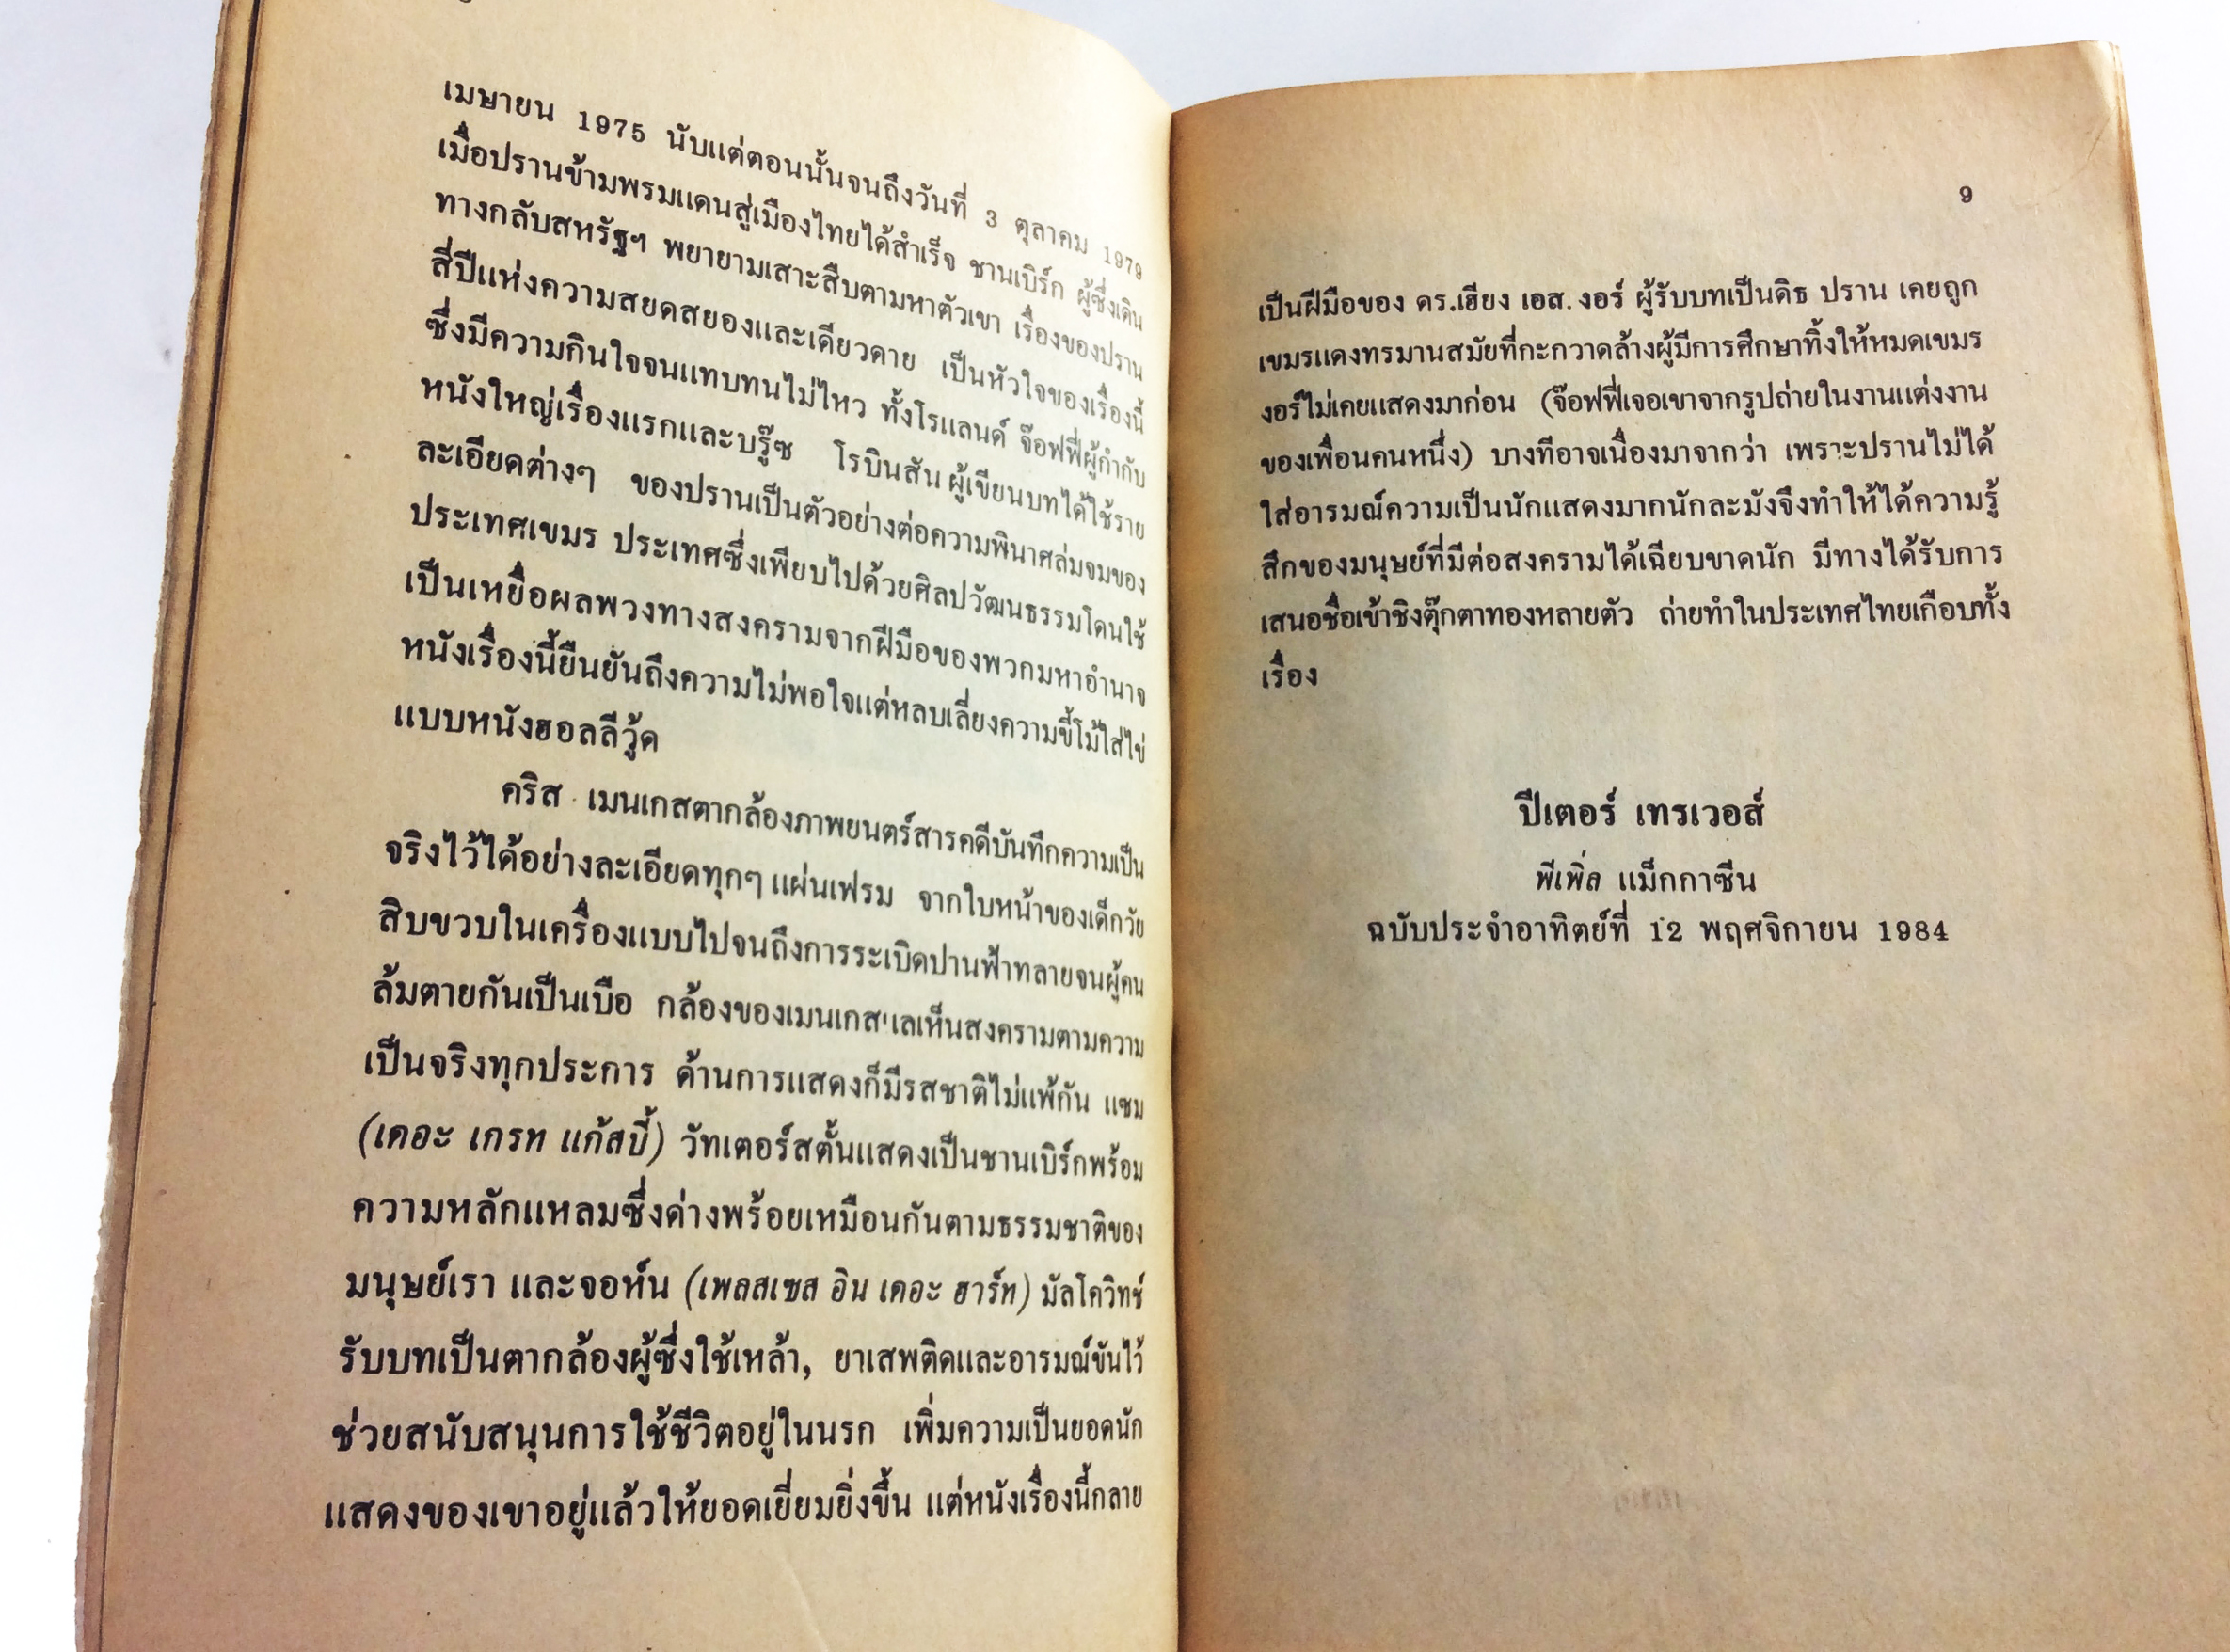 เมษายน 1975 นับแต่ตอนนั้นจนถึงวันที่ 3 ตุลาคม 1979
เมื่อปรานข้ามพรมแดนสู่เมืองไทยได้สำเร็จ ชานเบิร์ก ผู้ซึ่งเดิน
ทางกลับสหรัฐฯ พยายามเสาะสืบตามหาตัวเขา เรื่องของปราน
สี่ปีแห่งความสยดสยองและเดียวดาย เป็นหัวใจของเรื่องนี้
ซึ่งมีความกินใจจนแทบทนไม่ไหว ทั้งโรแลนด์ จ๊อฟฟี่ผู้กำกับ
หนังใหญ่เรื่องแรกและบรู๊ซ โรบินสัน ผู้เขียนบทได้ใช้ราย
ละเอียดต่างๆ ของปรานเป็นตัวอย่างต่อความพินาศล่มจมของ
ประเทศเขมร ประเทศซึ่งเพียบไปด้วยศิลปวัฒนธรรมโดนใช้
เป็นเหยื่อผลพวงทางสงครามจากฝีมือของพวกมหาอำนาจ
หนังเรื่องนี้ยืนยันถึงความไม่พอใจแต่หลบเลี่ยงความขี้โม้ใส่ไข่
แบบหนังฮอลลีวู้ด
คริส เมนเกสตากล้องภาพยนตร์สารคดีบันทึกความเป็น
จริงไว้ได้อย่างละเอียดทุกๆ แผ่นเฟรม จากใบหน้าของเด็กวัย
สิบขวบในเครื่องแบบไปจนถึงการระเบิดปานฟ้าทลายจนผู้คน
ล้มตายกันเป็นเบือ กล้องของเมนเกสแลเห็นสงครามตามความ
เป็นจริงทุกประการ ด้านการแสดงก็มีรสชาติไม่แพ้กัน แซม
(เดอะ เกรท แก้สบี้) วัทเตอร์สตั้นแสดงเป็นชานเบิร์กพร้อม
ความหลักแหลมซึ่งด่างพร้อยเหมือนกันตามธรรมชาติของ
มนุษย์เรา และจอห์น (เพลสเซส อิน เดอะ ฮาร์ท) มัลโควิทช์
รับบทเป็นตากล้องผู้ซึ่งใช้เหล้า, ยาเสพติดและอารมณ์ขันไว้
ช่วยสนับสนุนการใช้ชีวิตอยู่ในนรก เพิ่มความเป็นยอดนัก
แสดงของเขาอยู่แล้วให้ยอดเยี่ยมยิ่งขึ้น แต่หนังเรื่องนี้กลาย
9
เป็นฝีมือของ ดร.เฮียง เอส. งอร์ ผู้รับบทเป็นดิธ ปราน เคยถูก
เขมรแดงทรมานสมัยที่กะกวาดล้างผู้มีการศึกษาทิ้งให้หมดเขมร
งอร์ไม่เคยแสดงมาก่อน (จ๊อฟฟี่เจอเขาจากรูปถ่ายในงานแต่งงาน
ของเพื่อนคนหนึ่ง) บางทีอาจเนื่องมาจากว่า เพราะปรานไม่ได้
ใส่อารมณ์ความเป็นนักแสดงมากนักละมังจึงทำให้ได้ความรู้
สึกของมนุษย์ที่มีต่อสงครามได้เฉียบขาดนัก มีทางได้รับการ
เสนอชื่อเข้าชิงตุ๊กตาทองหลายตัว ถ่ายทำในประเทศไทยเกือบทั้ง
เรื่อง
ปีเตอร์ เทรเวอส์
พีเพิ่ล แม็กกาซีน
ฉบับประจำอาทิตย์ที่ 12 พฤศจิกายน 1984